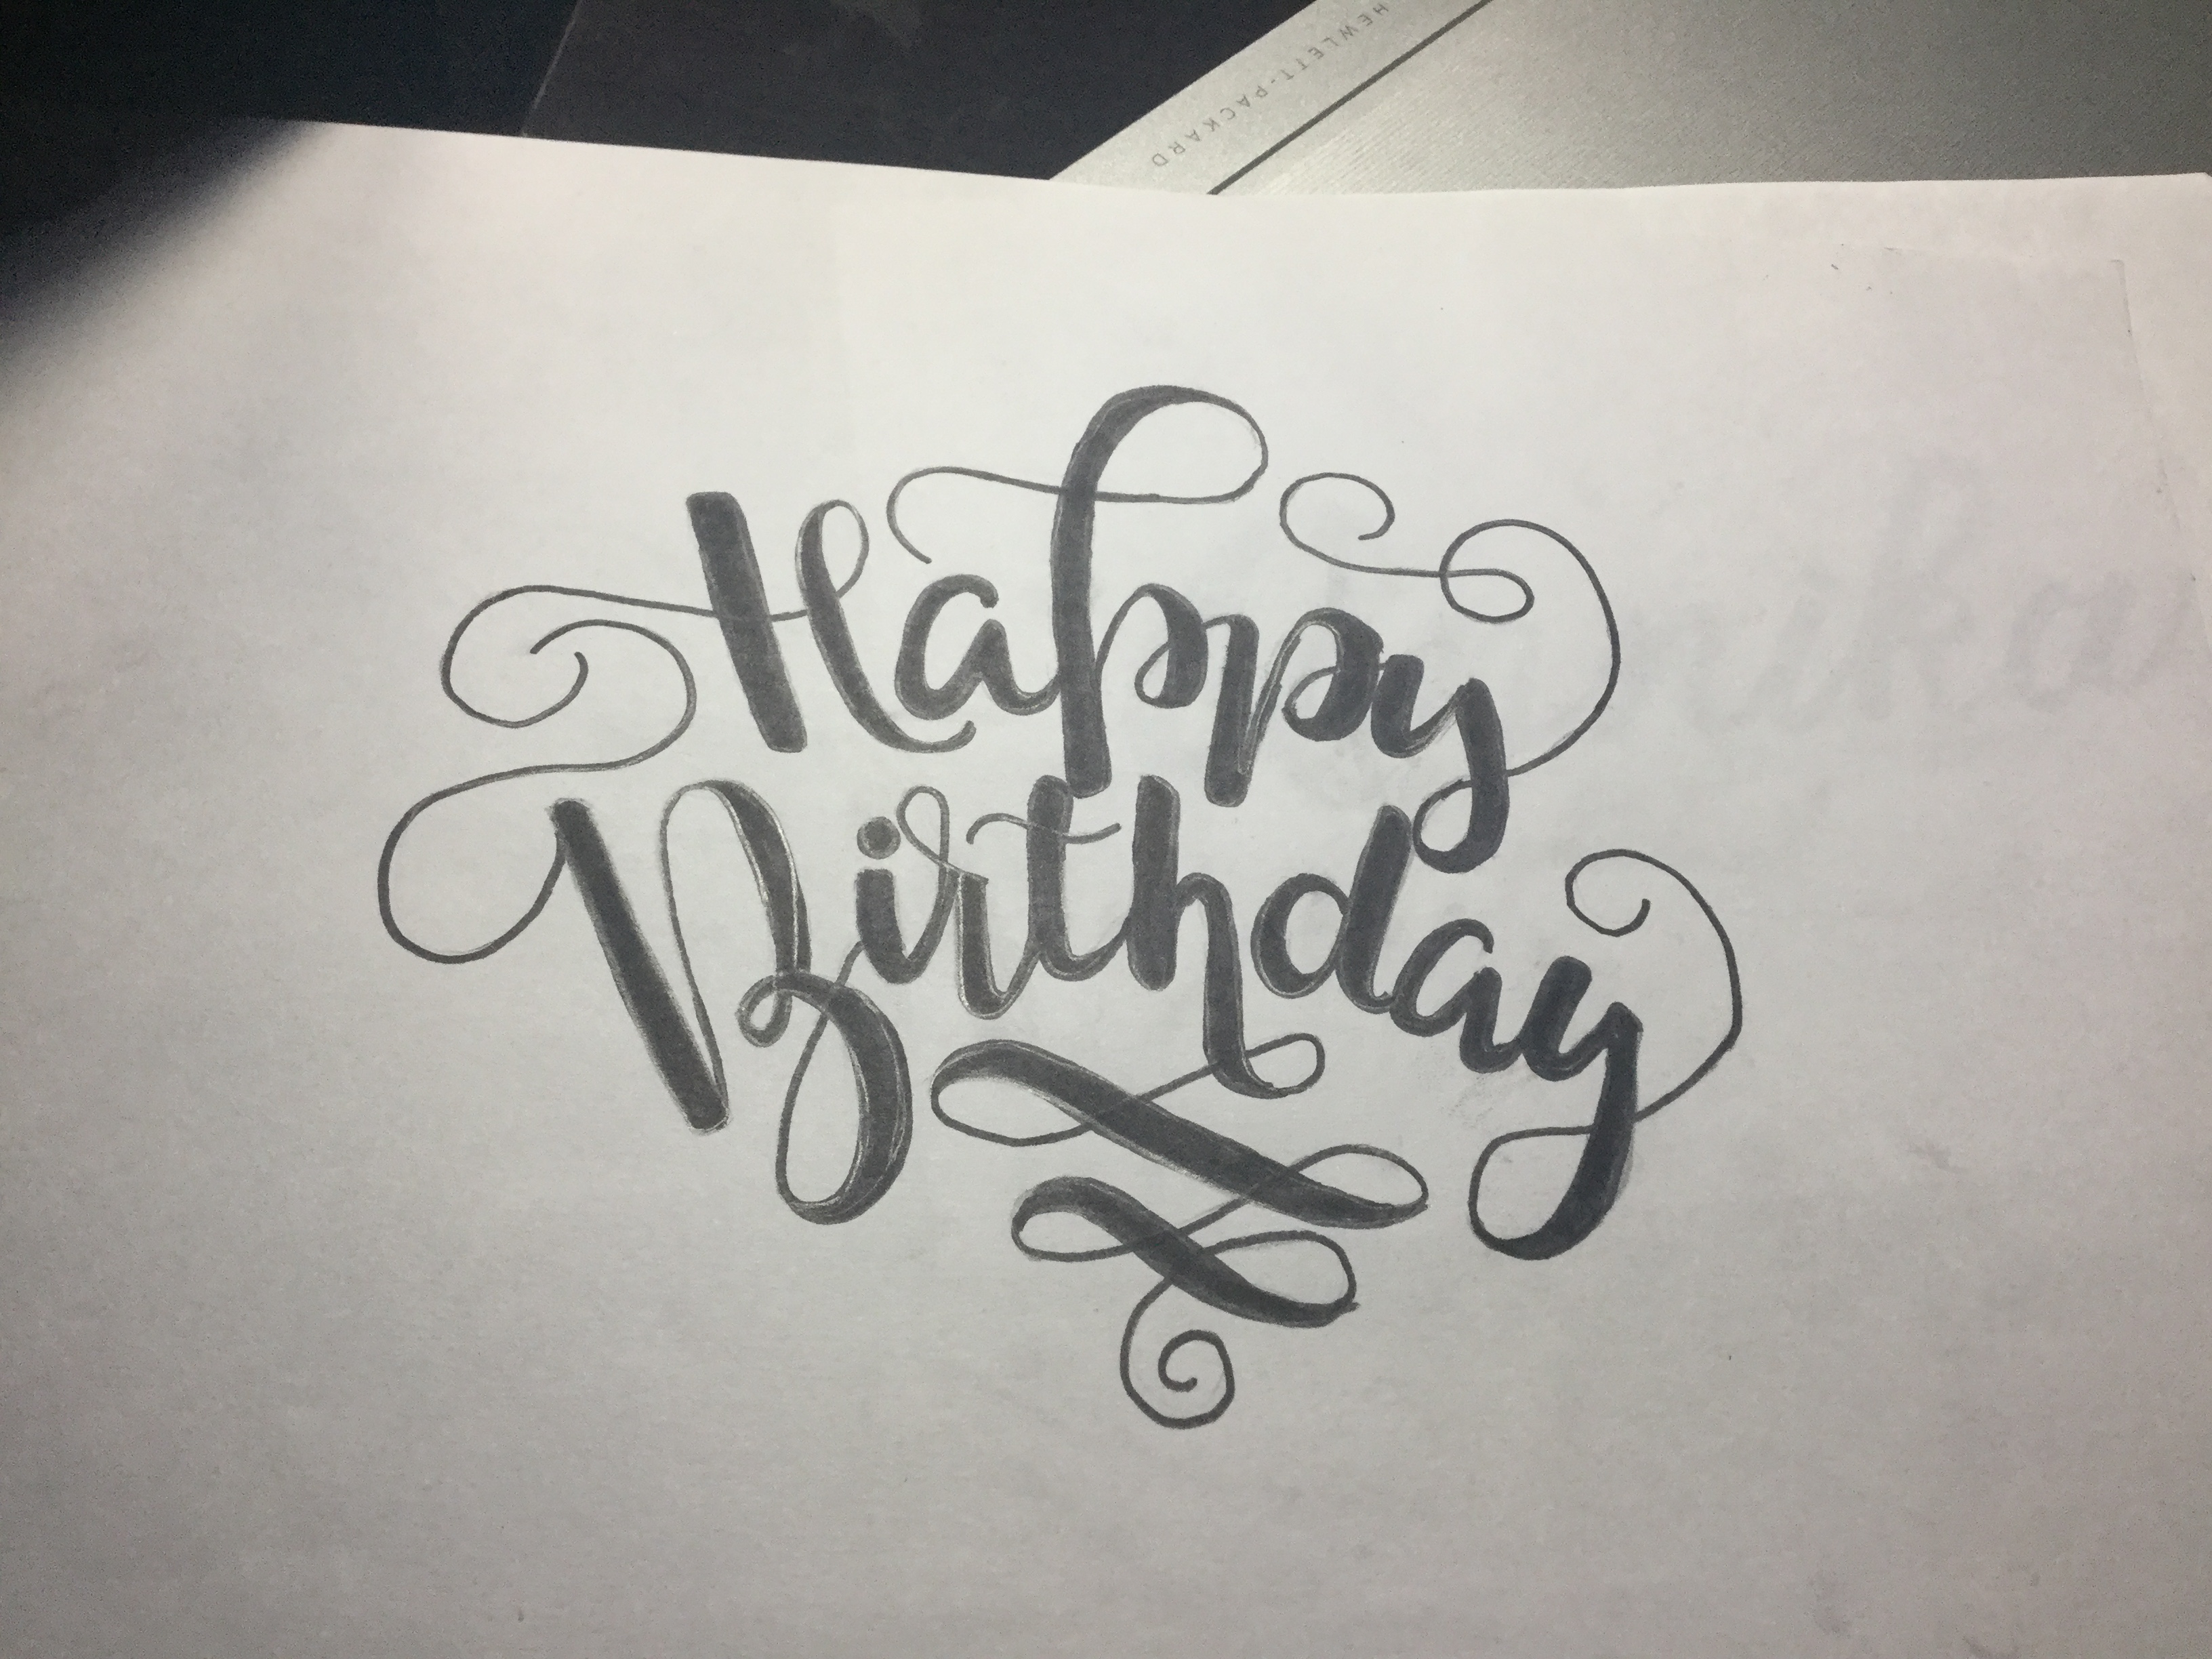 HEWLETT-PACKARD
Happy
Birthday